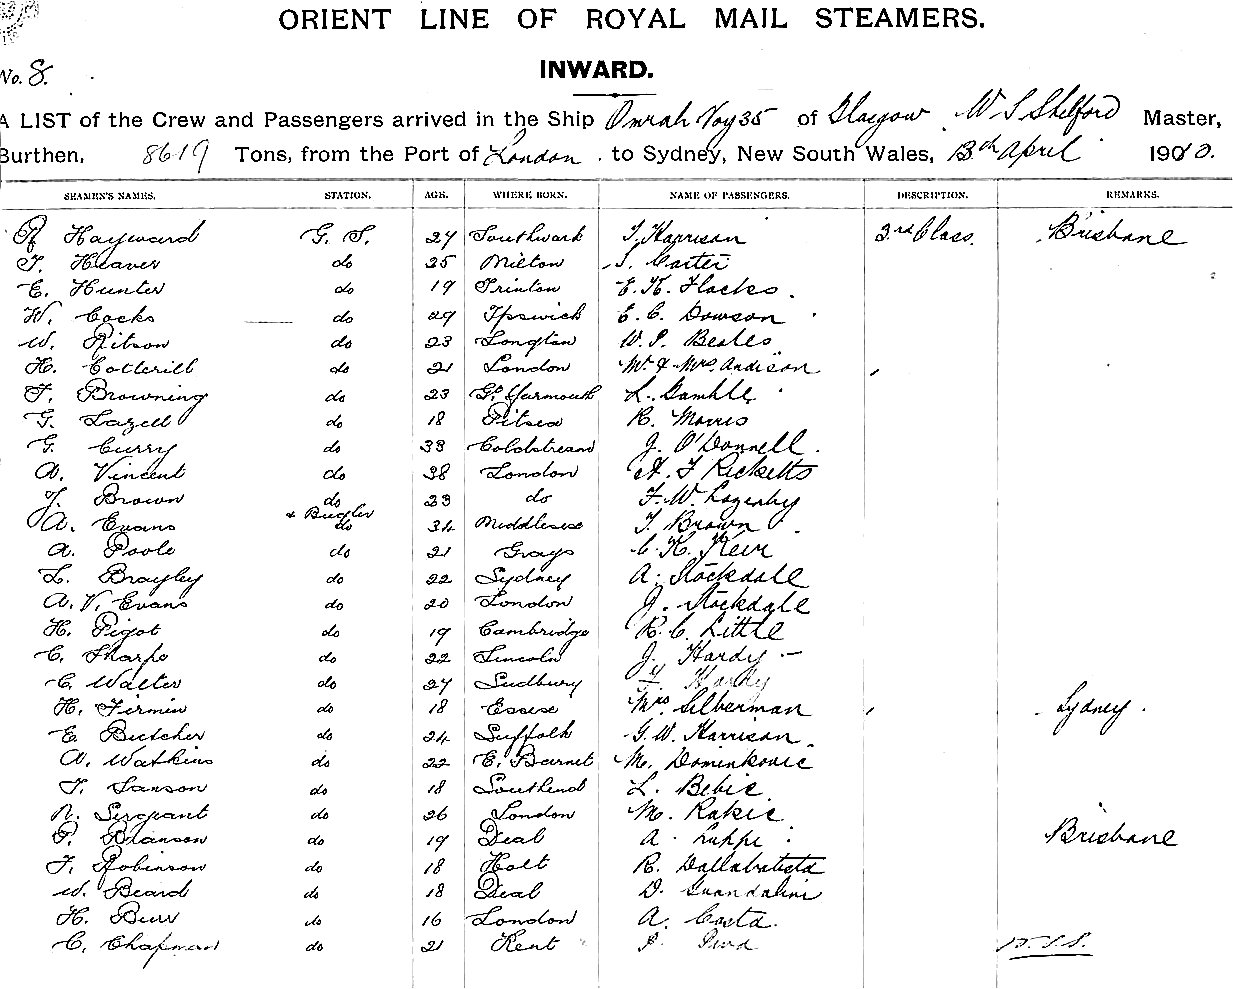 ORIENT LINE OF ROYAL MAIL STEAMERS.
No. 8.
INWARD.
A LIST of the Crew and Passengers arrived in the Ship Omrah Voy 35 of Glasgow W S Shelford Master,
Burthen, 8619 Tons, from the Port of London. to Sydney, New South Wales, 13th April 1910.
SEAMEN'S NAMES. STATION. AGE. WHERE BORN. NAME OF PASSENGERS. DESCRIPTION. REMARKS.
R Hayward G. S. 27 Southwark T. Harrison 3rd Class. Brisbane
T. Heaver do 25 Milton S. Carter
E. Hunter do 19 E. K. Flacks.
W. Cocks do 29 Ipswich E. C. Dowson
W. Ritson do 23 Longton W. P. Beales
H. Cotterill do 21 London Mr & Mrs Andison
F. Browning do 23 Gt. Yarmouth L. Gamble
G. Lazell do 18 Pitsea R. Morris
G. Curry do 33 Coldstream J. O'Donnell.
A. Vincent do 38 London H. J Ricketts
J. Brown do 23 do F. W. Lazenby
& Bugler
A. Evans do 34 Middlesex T. Brown
A. Poole do 21 Grays C. H. Keir
L. Brayley do 22 Sydney A. Stockdale
A. V. Evans do 20 London J. Stockdale
H. Pigot do 19 Cambridge R. C. Little
C. Sharpe do 22 Lincoln J. Hardy -
C. Walter do 27 Sudbury Hardy
H. Firmin do 18 Essex Mrs Silberman Sydney.
E. Butcher do 24 Suffolk G. W. Harrison.
A. Watkins do 22 E. Barnet M. Dominkovic
T. Sanson do 18 Southend L. Bebic
N. Sergeant do 26 London M. Rakic
P. Branson do 19 Deal A. Luppi Brisbane
F. Robinson do 18 Holt R. Dallabatista
W. Beard do 18 Deal D. Guandalini
H. Burr do 16 London A. Costa.
C. Chapman do 21 Kent P.